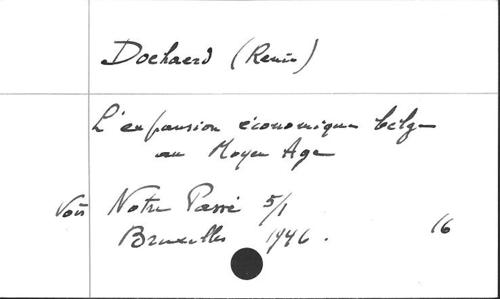 Doehaerd (Renée)
L'expansion économique belge
au Moyen Age
Voir Notre Passé 5/1
Bruxelles 1946. 16